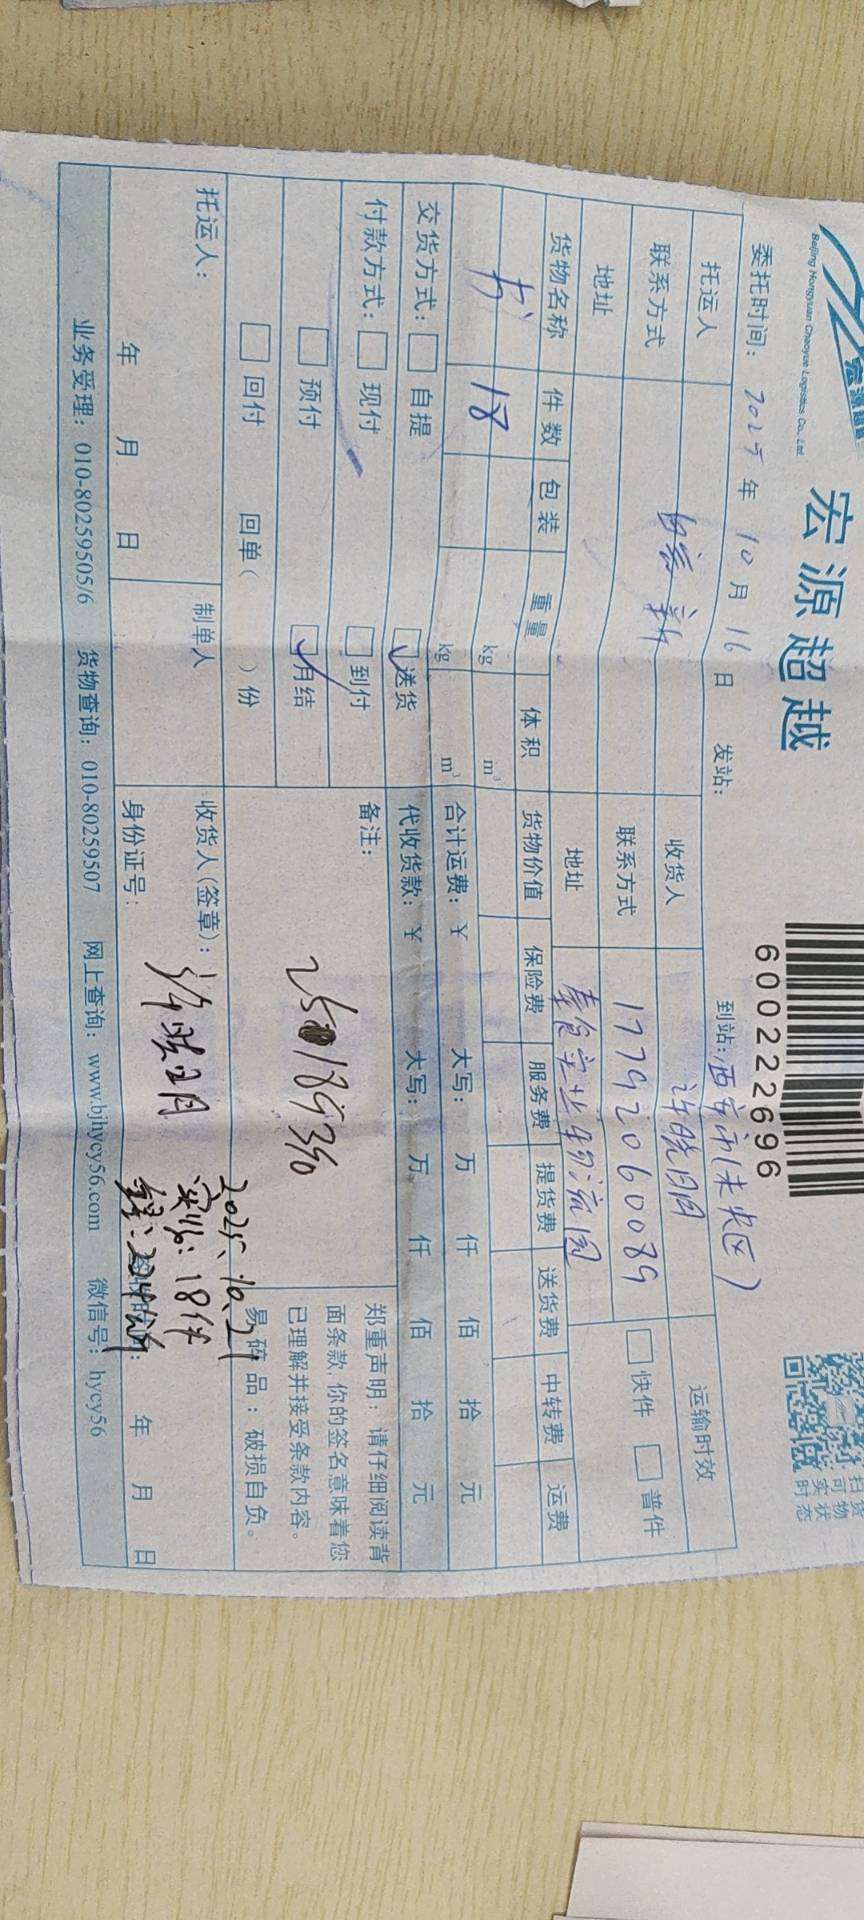 宏源超越
Beijing Hongyuan Chaoyue Logistics Co., Ltd.
6002222696
扫货
可物
实状
时态
委托时间: 2025年10月16日 发站: 到站:西安市(未央区)
托运人 收货人 许晓明 运输时效
联系方式 联系方式 17792060089 快件 普件
地址 地址 秦食实业物流园
货物名称 件数 包装 重量 体积 货物价值 保险费 服务费 提货费 送货费 中转费 运费
书 18 kg m³
kg m³ 合计运费: ¥ 大写: 万 仟 佰 拾 元
交货方式: 自提 送货 代收货款: ¥ 大写: 万 仟 佰 拾 元
付款方式: 现付 到付 备注:
预付 月结
回付 回单( )份
郑重声明:请仔细阅读背
面条款,你的签名意味着您
已理解并接受条款内容。
易碎品:破损自负。
托运人: 制单人 收货人(签章): 许晓明
2025.10.21
实收:18件
年 月 日 身份证号: 年 月 日
业务受理: 010-80259505/6 货物查询: 010-80259507 网上查询: www.bjhycy56.com 微信号: hycy56